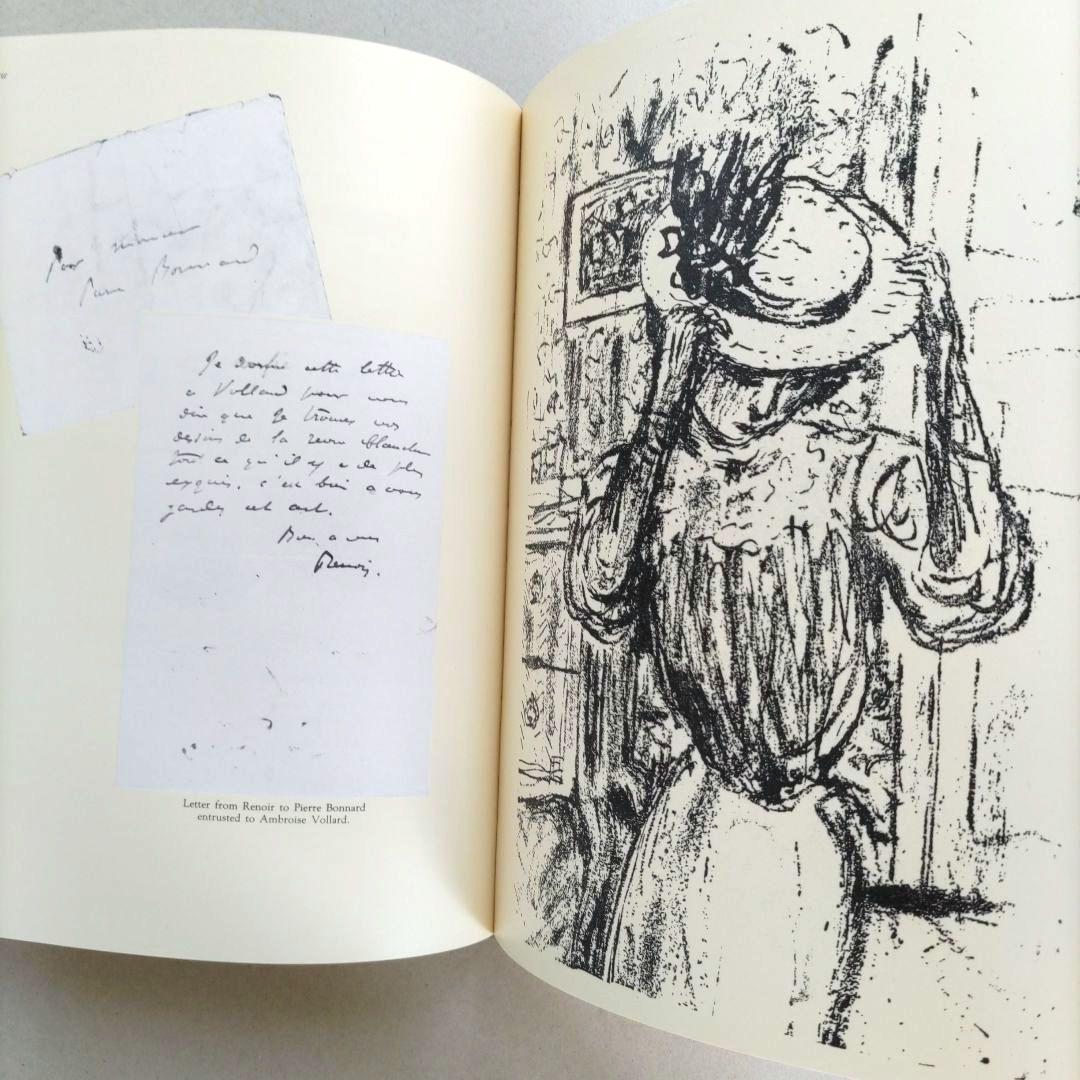 Pour monsieur
Pierre Bonnard
Je donne cette lettre
a Vollard pour vous
dire que je trouve vos
dessins de la revue blanche
tout ce qu'il y a de plus
exquis. c'est bien a vous
gardez cet art.
Bien a vous
Renoir.
Letter from Renoir to Pierre Bonnard
entrusted to Ambroise Vollard.